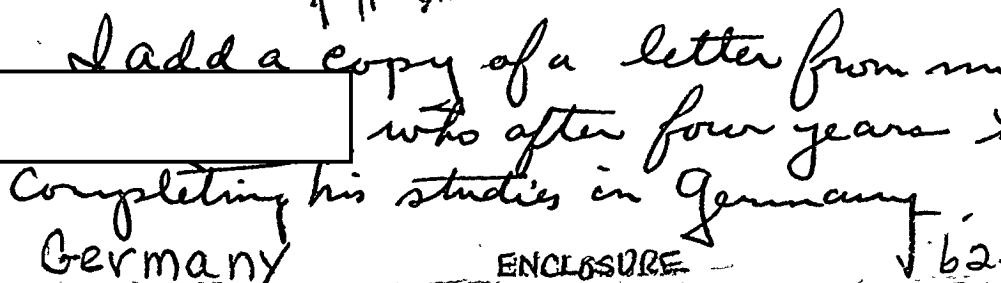 I add a copy of a letter from
who after four years
Completing his studies in Germany.
Germany ENCLOSURE b2